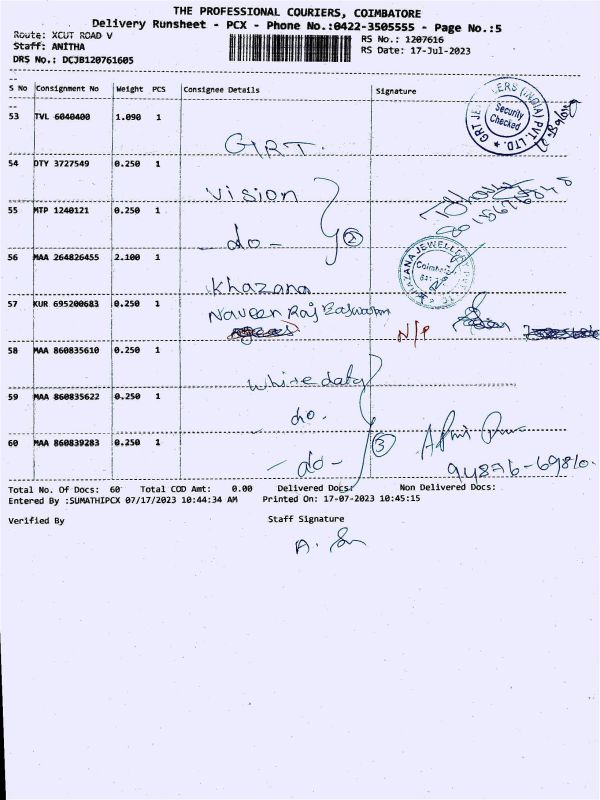 THE PROFESSIONAL COURIERS, COIMBATORE
Delivery Runsheet - PCX - Phone No.:0422-3505555 - Page No.:5
Route: XCUT ROAD V
RS No.: 1207616
Staff: ANITHA
RS Date: 17-Jul-2023
DRS No.: DCJB120761605
S No Consignment No Weight PCS Consignee Details Signature
53 TVL 6040400 1.090 1
GRT.
GRT JEWELLERS (INDIA) PVT. LTD. ★
Security
Checked
54 DTY 3727549 0.250 1
Vision
55 MTP 1240121 0.250 1
- do - 2
56 MAA 264826455 2.100 1
Khazana
KHAZANA JEWELLERY
57 KUR 695200683 0.250 1
Naveen Raj Easwaran
N/P
58 MAA 860835610 0.250 1
White data
59 MAA 860835622 0.250 1
- do.
60 MAA 860839283 0.250 1
- do - 3
94876-69810.
Total No. Of Docs: 60 Total COD Amt: 0.00 Delivered Docs: Non Delivered Docs:
Entered By :SUMATHIPCX 07/17/2023 10:44:34 AM Printed On: 17-07-2023 10:45:15
Verified By Staff Signature